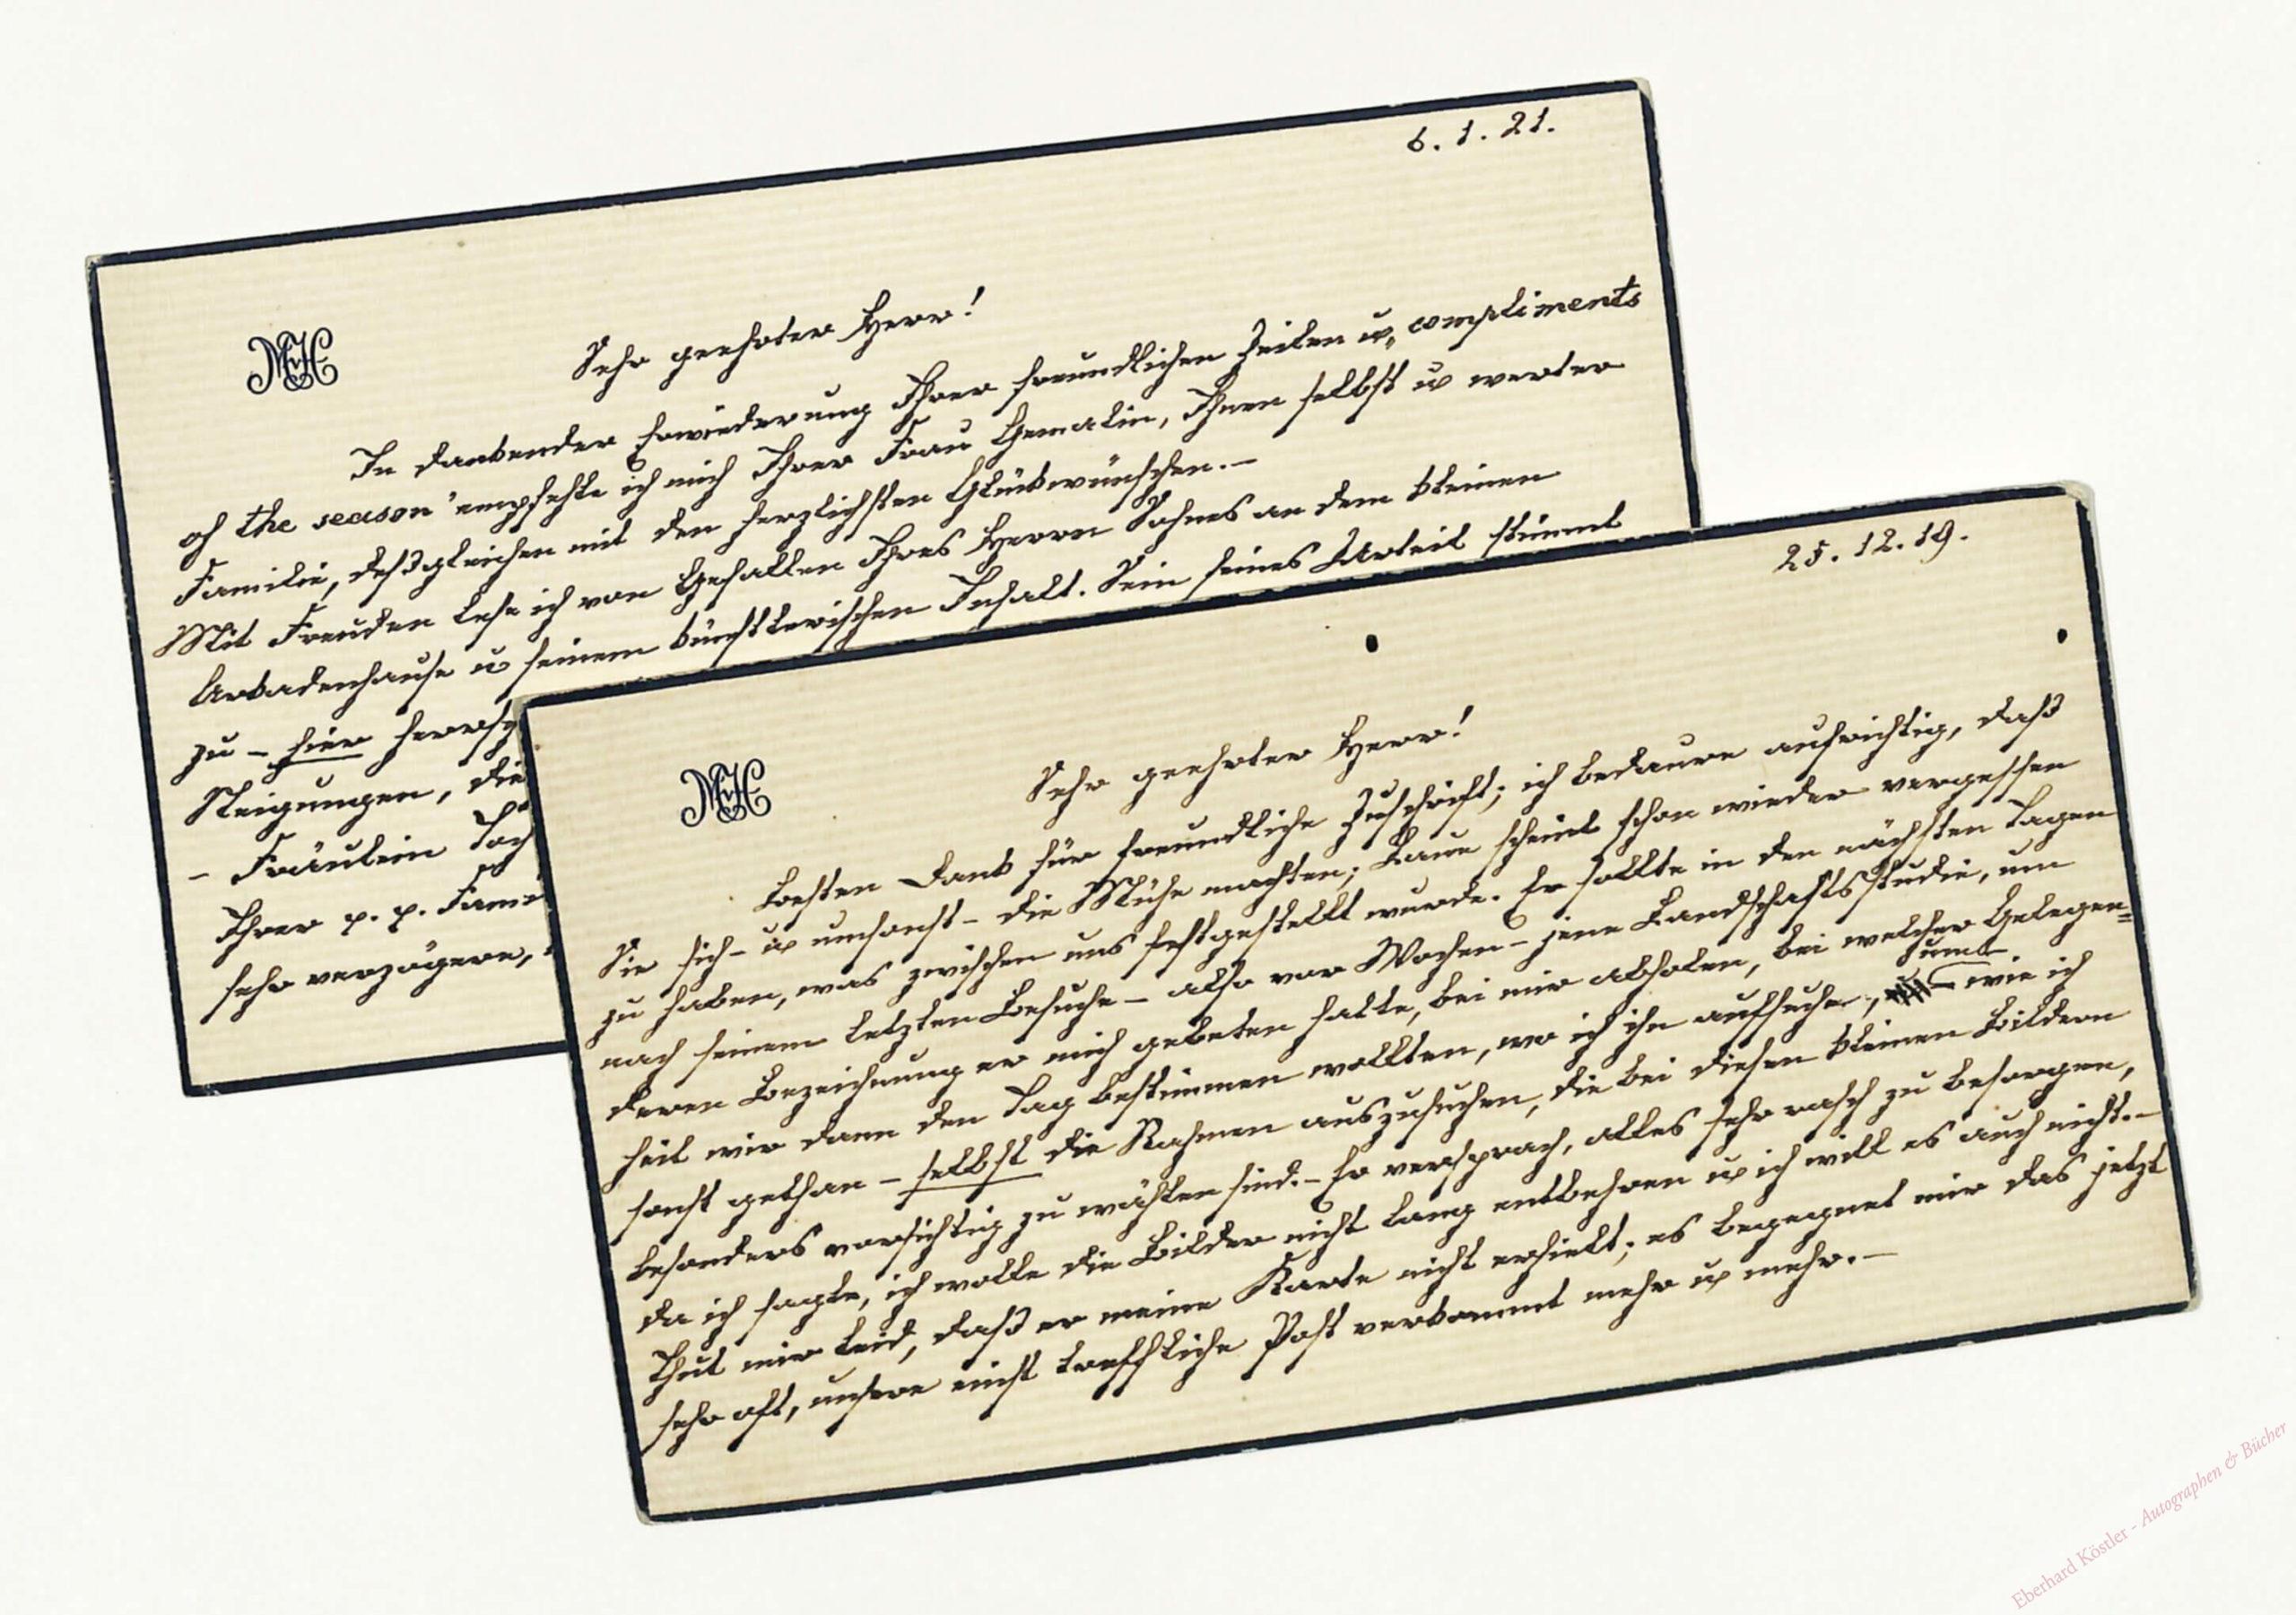 6. 1. 21.
MvH
Sehr geehrter Herr!
In dankender Erwiederung Ihrer freundlichen Zeilen u „compliments
of the season" empfehle ich mich Ihrer Frau Gemalin, Ihnen selbst u werter
Familie, deßgleichen mit den herzlichsten Glückwünschen. –
Mit Freuden lese ich von Gefallen Ihres Herrn Sohnes an dem kleinen
Arkadenhause u seinem künstlerischen Inhalt. Sein feines Urteil stimmt
zu – hier herrsch
Steigungen, die
– Fräulein Toch
Ihrer p. p. Fami
sehr verzögere,
25. 12. 19.
MvH
Sehr geehrter Herr!
Besten Dank für freundliche Zuschrift; ich bedaure aufrichtig, daß
Sie sich – u umsonst – die Mühe machten; Laue scheint schon wieder vergessen
zu haben, was zwischen uns festgestellt wurde. Er sollte in den nächsten Tagen
nach seinem letzten Besuche – also vor Wochen – jene Landschaftsstudie, um
deren Bezeichnung er mich gebeten hatte, bei mir abholen, bei welcher Gelegen=
heit wir dann den Tag bestimmen wollten, wo ich ihn aufsuche, um – wie ich
sonst gethan – selbst die Rahmen auszusuchen, die bei diesen kleinen Bildern
besonders vorsichtig zu wählen sind. – Er versprach, alles sehr rasch zu besorgen,
da ich sagte, ich wolle die Bilder nicht lang entbehren u ich will es auch nicht. –
Thut mir leid, daß er meine Karte nicht erhielt; es begegnet mir das jetzt
sehr oft, unsere einst treffliche Post verkommt mehr u mehr. –
Eberhard Köstler - Autographen & Bücher